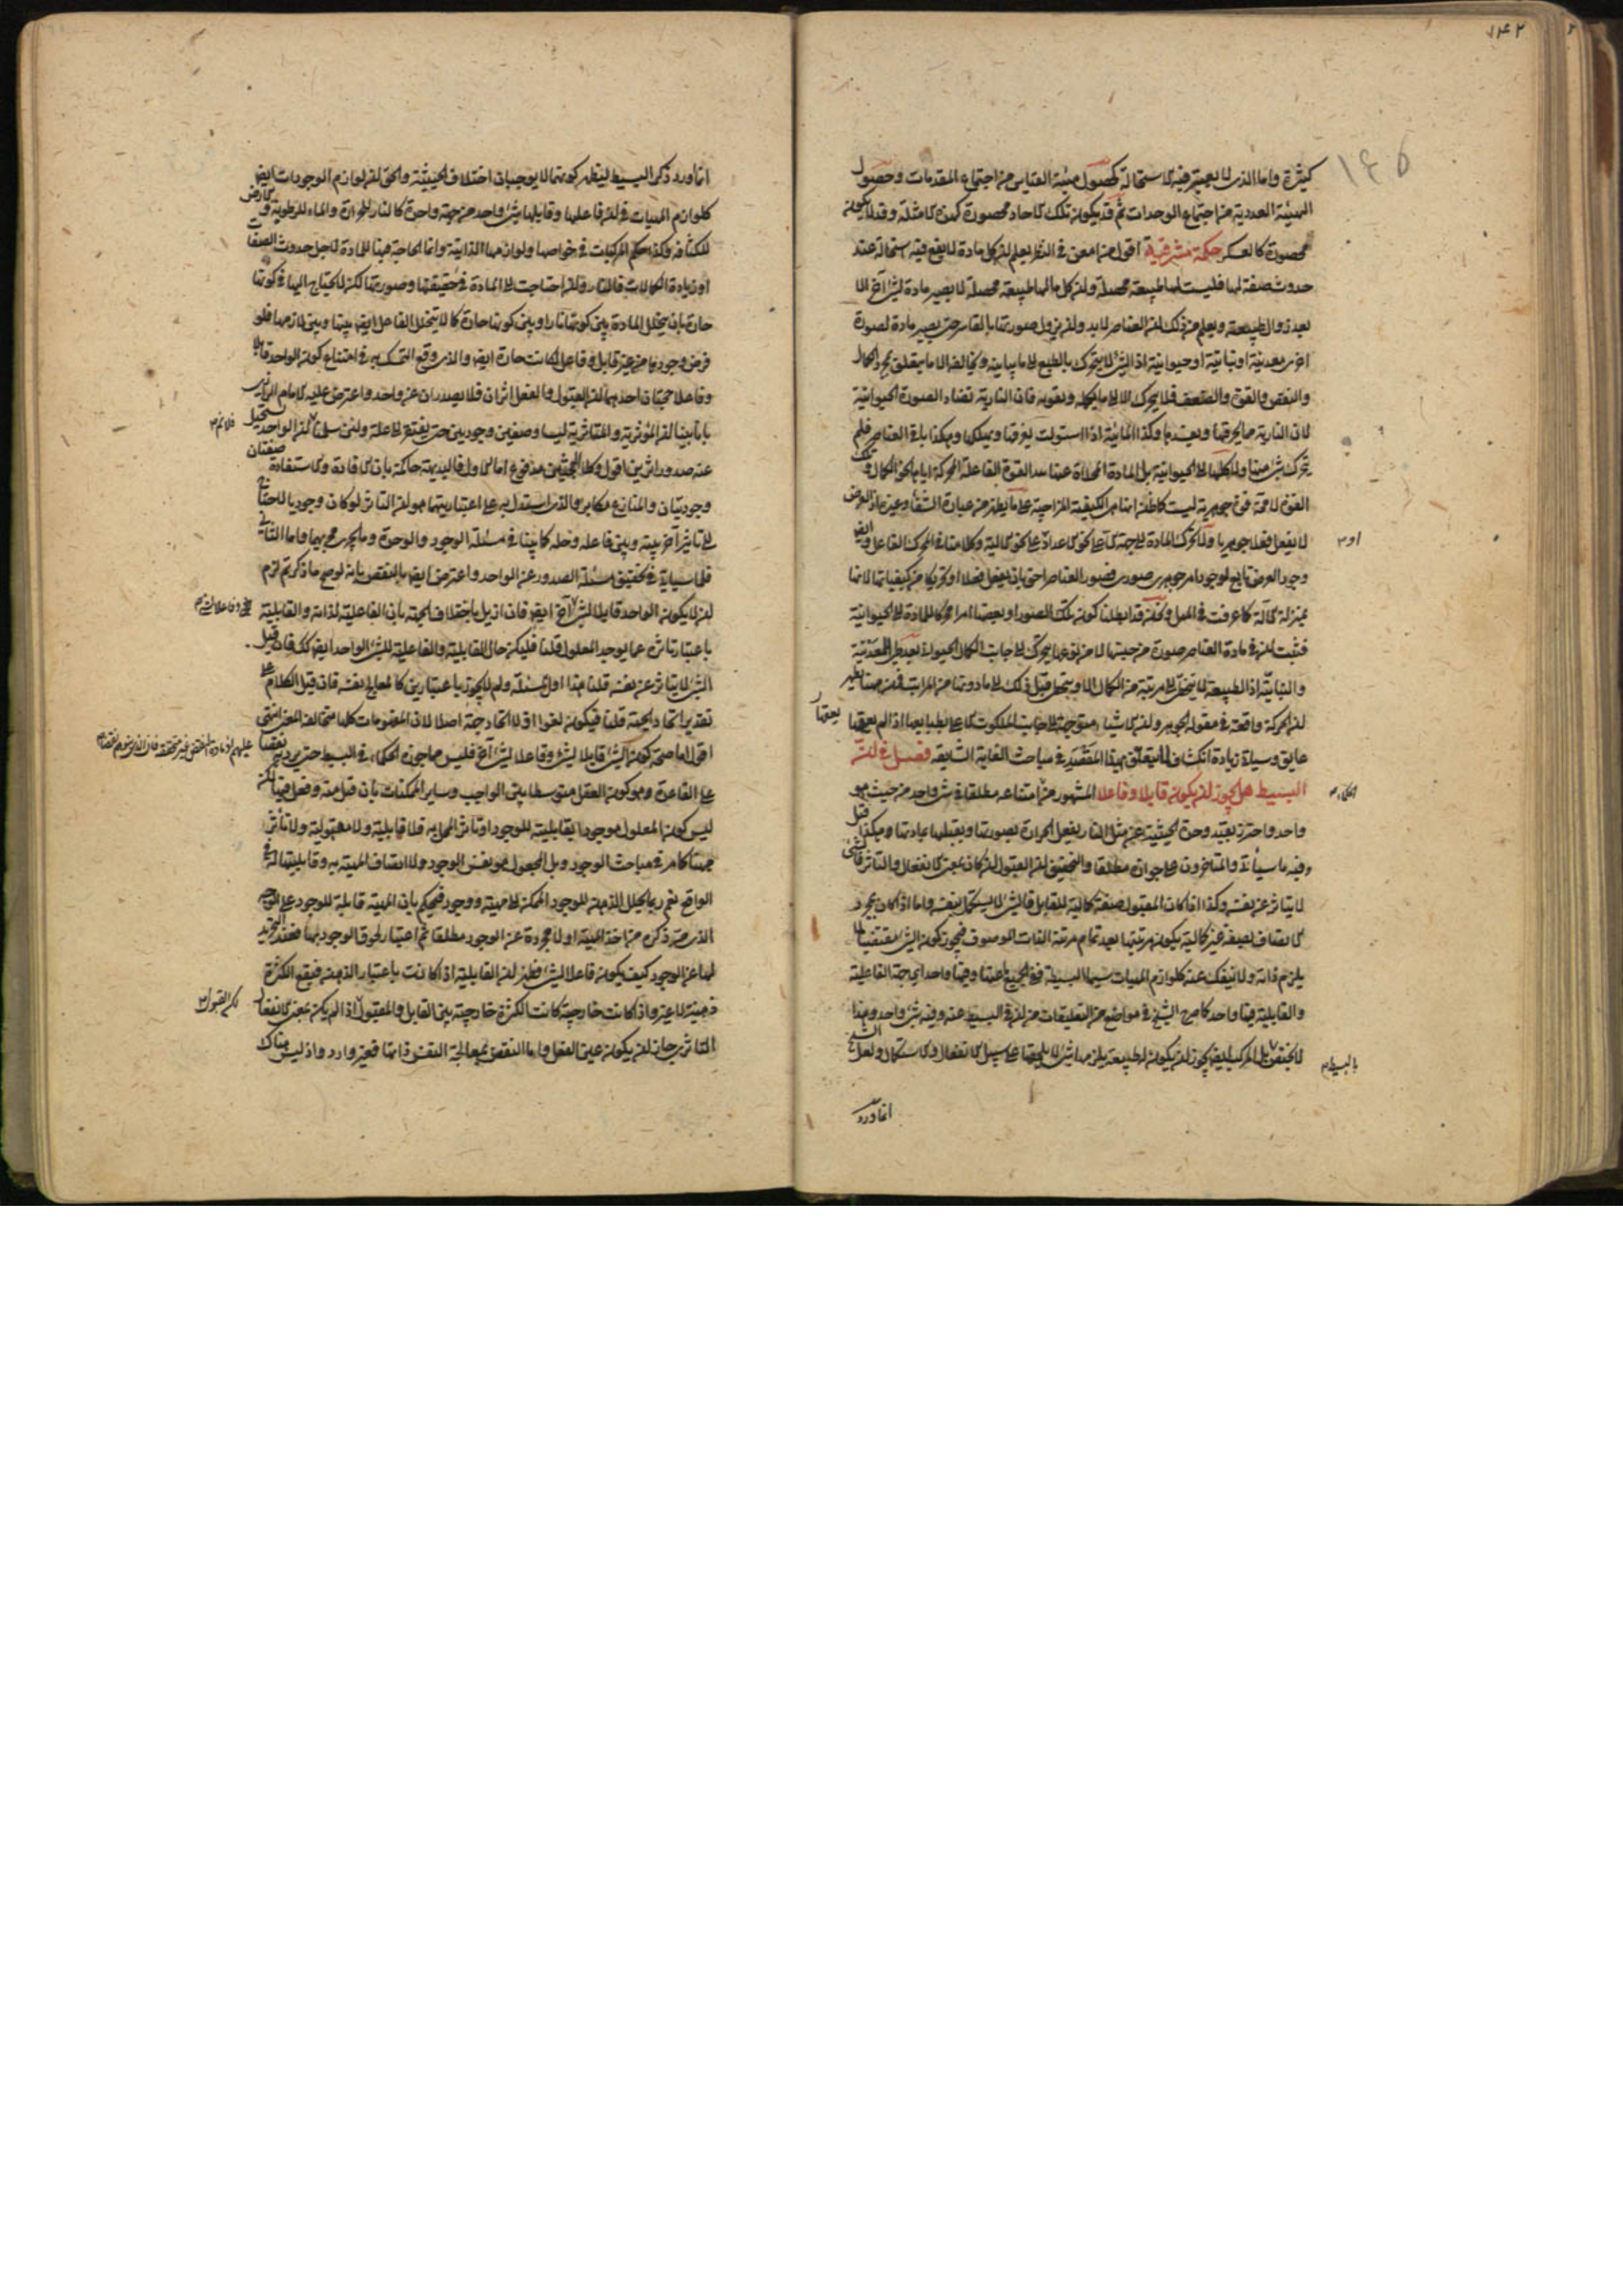 ١٤٢
١٤٥
كثيرة واما الذى لا يعتبر فيه الاستحالة كحصول هيئة القياس من اجتماع المقدمات وحصول
الهيئة العددية من اجتماع الوحدات ثم قد يكون تلك الاحاد محصورة كهذه الامثلة وقد لا يكون
محصورة كالعسكر حكمة مشرقية اقول من امعن فى النظر يعلم ان كل مادة لا يقع فيه استحالة عند
حدوث صفة لها فليست لها طبيعة محصلة وان كل ما لها طبيعة محصلة لا يصير مادة لشئ آخر الا
بعد زوال طبيعته ويعلم من ذلك ان العناصر لابد وان يزول صورتها بالقاسر حتى يصير مادة لصورة
اخرى معدنية او نباتية او حيوانية اذ الشئ لا يتحرك بالطبع الى ما يباينه ويخالفه الا ما يتعلق بمجرد الكمال
والنقص والقوة والضعف فلا يتحرك الا الى ما يكمله ويقويه فان النارية تضاد الصورة الحيوانية
لان النارية مما يحرقها ويفسدها وكذا المائية اذا استولت يغرقها ويهلكها وهكذا باقى العناصر فلم
يتحرك شئ منها ولا كلها الى الحيوانية بل المادة المخلاة عنها بيد القوة الفاعلة المحركة اياها نحو الكمال وتلك
القوة لا محة قوة جوهرية ليست كما ظن انها هى الكيفية المزاجية على ما يظهر من عبارة الشفا وغيره اذ العرض
لا يفعل فعلا جوهريا ولا يحرك المادة الى جهة الا على نحو الاعداد على نحو الالية وكلامنا فى المحرك الفاعل وايضا
وجود العرض تابع لوجود امر جوهرى صورى فصور العناصر احق بان يفعل فعلا او تحريكا من كيفياتها لانها
بمنزلة الالة كما عرفت فى الميل ونحن قد ابطلنا كون تلك الصور او بعضها امرا محركا للمادة الى الحيوانية
فثبت ان فى مادة العناصر صورة من حيثها لا من نوعها يتحرك الى جانب الكمال الحيوانى بعد طى المعدنية
والنباتية اذ الطبيعة لا يتخطى الى مرتبة من الكمال الا ويتخطى قبل ذلك الى ما دونها من المراتب فمن هيهنا يظهر
ان الحركة واقعة فى مقولة الجوهر وان الاشياء متوجهة الى جانب الملكوت الاعلى بطبايعها اذا لم يعقها
عايق وسياتى زيادة انكشاف لما يتعلق بهذا المقصد فى مباحث الغاية الشايعة فصل فى ان
البسيط هل يجوز ان يكون قابلا وفاعلا المشهور من امتناعه مطلقا فى شئ واحد من حيث هو
واحد واحترز بقيد وحدة الحيثية عن مثل النار يفعل الحرارة بصورتها ويقبلها بمادتها وهكذا قيل
وفيه ما سيأتى والمتاخرون على جوازه مطلقا والتحقيق ان القبول ان كان بمعنى الانفعال والتاثر فالشئ
لا يتاثر عن نفسه وكذا اذا كان المقبول صفة كمالية للقابل فالشئ لا يستكمل بنفسه واما اذا كان بمجرد
الاتصاف بصفة غير كمالية يكون مرتبتها بعد تمام مرتبة الذات الموصوف فيجوز كون الشئ مقتضيا لما
يلزم ذاته ولا ينفك عنه كلوازم المهيات سيما البسيطة ففى الجميع عنها وفيها واحد اى جهة الفاعلية
والقابلية فيها واحد كما صرح الشيخ فى مواضع من التعليقات من ان فى البسيط عنه وفيه شئ واحد وهذا
لا يختص بل المركب ايضا يجوز ان يكون له طبيعة يلزمها شئ لا يلحقها على سبيل الانفعال والاستكمال ولعل الشيخ
بالبسيط
انما اورد
انما اورد ذكر البسيط ليظهر كونهما لا يوجبان اختلاف الحيثية والحق ان لوازم الوجودات ايضا
كلوازم المهيات فى ان فاعلها وقابلها شئ واحد من جهة واحدة كالنار للحرارة والماء للرطوبة والارض
للكثافة وكذا حكم المركبات فى خواصها ولوازمها الذاتية وانما الحاجة فيها للمادة لاجل حدوث الصفات
او زيادة الكمالات فالنار وان احتاجت الى المادة فى حقيقتها وصورتها لكن لا يحتاج اليها فى كونها
حارة بان يتخلل المادة بين كونها نارا وبين كونها حارة كما لا يتخلل الفاعل ايضا بينها وبين لازمها فلو
فرض وجودها من غير قابل وفاعل لكانت حارة ايضا والذى وقع التمسك به فى امتناع كون الواحد قابلا
وفاعلا حجتان احدهما ان القبول والفعل اثران فلا يصدران عن واحد واعترض عليه الامام الرازى
بانا بينا ان المؤثرية والمتاثرية ليسا وصفين وجوديين حتى يفتقر الى علة ولئن سلمنا ان الواحد يستحيل
عنه صدور اثرين اقول وكلا البحثين مدفوع اما الاول فالبديهة حاكمة بان الافادة والاستفادة صفتان
وجوديتان والمنازع مكابر والذى استدل به على اعتباريتهما هو ان التاثر لو كان وجوديا لاحتاج
الى تاثير آخر بينه وبين فاعله وحله كما بينا فى مسئلة الوجود والوحدة وما يجرى مجريهما واما الثانى
فلما سياتى فى تحقيق مسئلة الصدور عن الواحد واعترض ايضا بالنقض بانه لو صح ما ذكر تم لزم
ان لا يكون الواحد قابلا لشئ آخر ايضا فان ازيل باختلاف الجهة بان الفاعلية لذاته والقابلية
باعتبار تاثره عما يوجد المعلول قلنا فليكن حال القابلية والفاعلية للشئ الواحد ايضا كك فان قيل
الشئ لا يتاثر عن نفسه قلنا هذا اول المسئلة ولم لا يجوز باعتبارين كالمعالج نفسه فان قيل الكلام على
تقدير اتحاد الجهة قلنا فيكون لغوا اذ لا اتحاد جهة اصلا لان المفهومات كلها متخالفة المعنى انتهى
اقول اما صحة كون الشئ قابلا لشئ وفاعلا لشئ آخر فليس مما جوزه الحكماء فى البسيط حتى يرد به نقضا
على القاعدة وهو كون العقل متوسطا بين الواجب وساير الممكنات بان قبل منه وفعل فيها لكن
ليس كون المعلول موجودا بقابليته للوجود او تاثر المحل به فلا قابلية ولا مقبولية ولا تأثر
هيهنا كما مر فى مباحث الوجود بل المجعول هو نفس الوجود ولا اتصاف المهية به وقابليتها له فى
الواقع نعم ربما يحلل الذهن للوجود الممكن الى مهية ووجود فيحكم بان المهية قابلية للوجود على الوجه
الذى مر ذكره من اخذ المهية اولا مجردة عن الوجود مطلقا ثم اعتبار لحوق الوجود بها فعند التجريد
لها عن الوجود كيف يكون فاعلا لشئ فظهر ان القابلية اذا كانت باعتبار الذهن فيقع الكثرة
ذهنية لا غير واذا كانت خارجية كانت الكثرة خارجية بين القابل والمقبول اذا لم يكن بمعنى الانفعال
التاثرى جاز ان يكون عين الفعل واما النقض بمعالجة النفس ذاتها فغير وارد واذ ليس هناك
لكن القبول